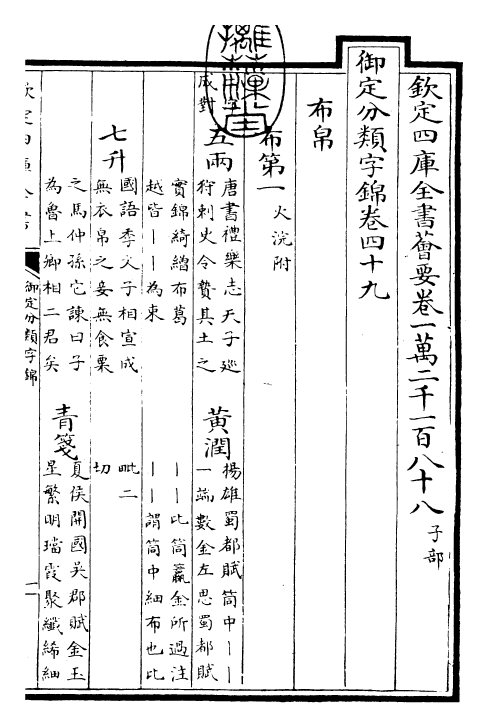 欽定四庫全書薈要卷一萬二千一百八十八 子部
御定分類字錦卷四十九
布帛
布第一 火浣附
字
成對
五兩
唐書禮樂志天子廵
狩刺史令贄其土之
實錦綺繒布葛
越皆丨丨為束
黃潤
楊雄蜀都賦筒中丨丨
一端數金左思蜀都賦
丨丨比筒籯金所過注
丨丨謂筒中細布也比
毗二
切
七升
國語季文子相宣成
無衣帛之妾無食粟
之馬仲孫它諫曰子
為魯上卿相二君矣
青箋
夏侯開國吳郡賦金玉
星繁明璫霞聚纖絺細
欽定四庫全書
御定分類字錦
一
摛藻堂